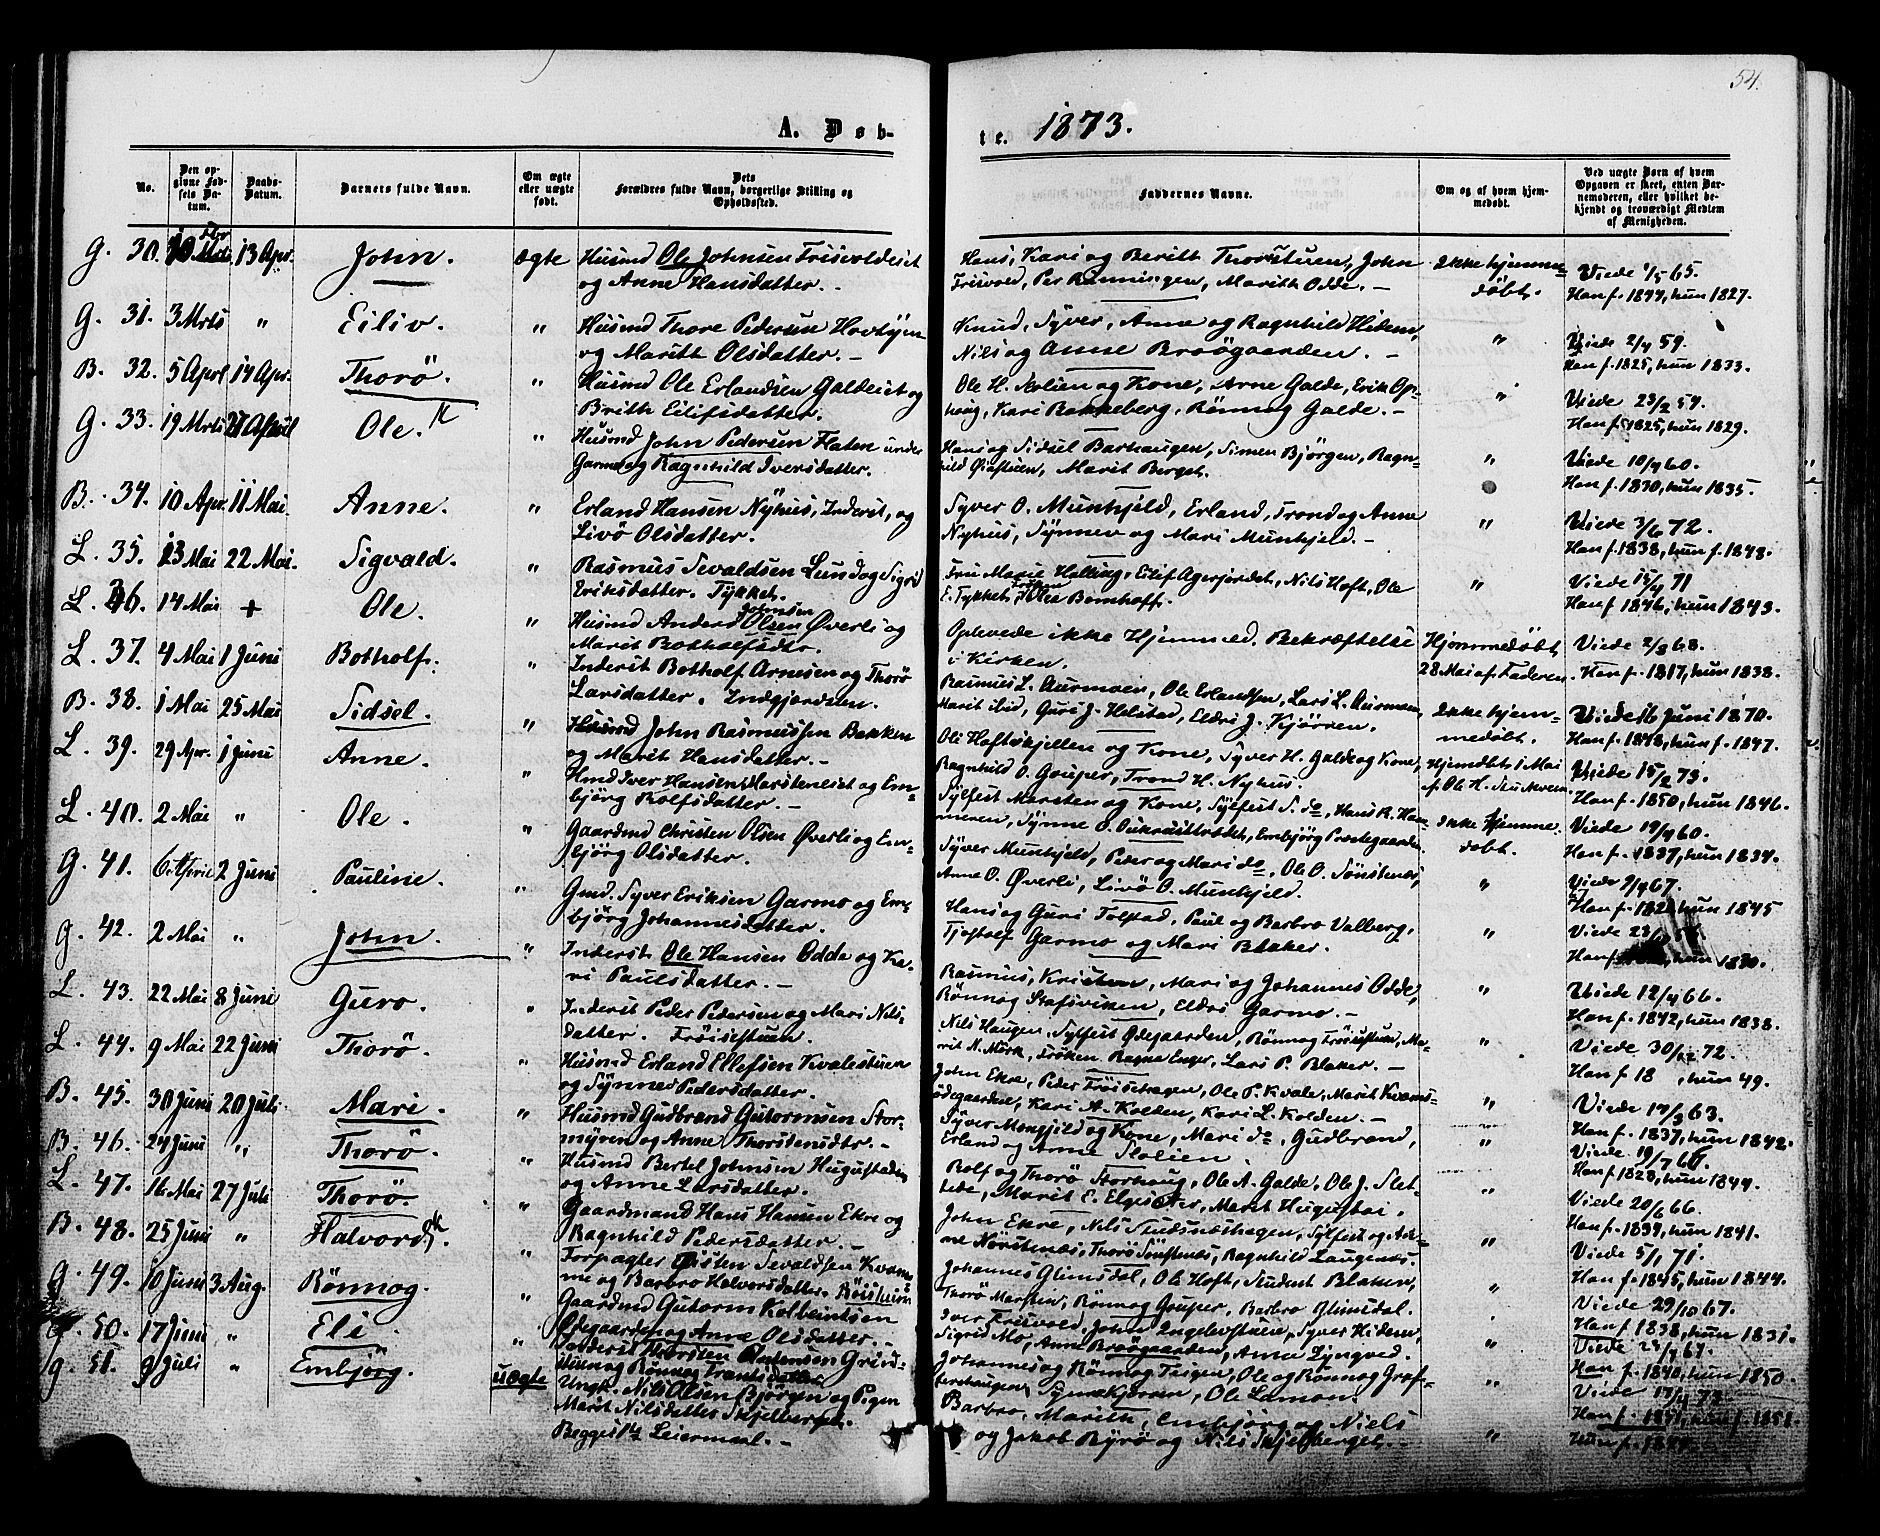 54.
A. Døb-
te. 1873.
No.
Den opgivne Fødsels Datum.
Daabs-Datum.
Barnets fulde Navn.
Om ægte eller uægte født.
Dets Forældres fulde Navn, borgerlige Stilling og Opholdssted.
Faddernes Navne.
Om og af hvem hjemmedøbt.
Ved uægte Børn af hvem Opgaven er skeet, enten Barnemoderen, eller hvilket bekjendt og troværdigt Medlem af Menigheden.
G. 30. 13 Apr. John. ægte Husmd Ole Johnsen Frisvoldeiet
og Anne Hansdatter. —
Hans, Kari og Berith Thorstuen, John
Frisvold, Per Rønningen, Marith Odde. —
Ikke hjemme-
døbt.
Viede 1/5 65.
Han f. 1844, hun 1827.
G. 31. 3 Mrts " Eiliv. " Husmd Thore Pedersen
og Marith Olsdatter. —
Knud, Syver, Anne og Ragnhild Hidem,
Nils og Anne Brøøgaarden. —
"
Viede 2/4 59.
Han f. 1825, hun 1833.
B. 32. 5 Aprl 14 Apr. Thorö. " Husmd Ole Erlandsen Galdeeiet og
Brith Eilifsdatter.
Ole H. Slolien og Kone, Arne Galde, Erik Op-
haug, Kari Bakkeberg, Rönnog Galde. —
"
Viede 23/2 57.
Han f. 1825, hun 1829.
G. 33. 19 Mrts 27 April Ole. " Husmd John Pedersen Flaten under
Garmo og Ragnhild Iversdatter.
Hans og Sidsel Barhaugen, Simen Björgen, Ragn-
hild Øiastuen, Marit Berget.
"
Viede 10/4 60.
Han f. 1830, hun 1835.
B. 34. 10 Apr. 11 Mai. Anne. " Erland Hansen Nyhus, Inderst, og
Livö Olsdatter.
Syver O. Munkjeld, Erland, Trond og Anne
Nyhus, Synnev og Mari Munkjeld. —
"
Viede 3/6 72.
Han f. 1838, hun f. 1848.
L. 35. 23 Mai 22 Mai. Sigvald. " Rasmus Sevaldsen Lund og Sigrid
Eriksdatter. Tykket.
Fru Marie Halling, Eilif Agerjordet, Nils Hoft, Ole
E. Tykket, Frøken Bomhoff.
"
Viede 15/4 71
Han f. 1846, hun 1843.
L. 36. 14 Mai + Ole. " Husmd Anders Johnsen Øverli og
Marit Botholfsdtr.
Oplevede ikke Hjemmed. Bekræftelse
i Kirken.
Hjemmedøbt
28 Mai af Faderen.
Viede 2/3 68.
Han f. 1817, hun 1838.
L. 37. 4 Mai 1 Juni Botholf. " Inderst Botholf Arnesen og Thorö
Larsdatter. Indgjerdeen.
Rasmus L. Aurmoen, Ole Erlandsen, Lars L. Aurmoen,
Marit ibid, Guri J. Helstad, Eldri J. Kjörren.
Ikke hjem-
medøbt.
Viede 16 Juni 1870.
Han f. 1848, hun 1847.
B. 38. 1 Mai 25 Mai Sidsel. " Husmd John Rasmussen Bakken
og Marit Hansdatter. —
Ole Hoftskjellen og Kone, Syver H. Galde og Kone,
Ragnhild O. Gouper, Trond H. Nyhus.
Hjemdöbt 1 Mai
af Ole H.
Viede 15/2 73.
Han f. 1850, hun 1846.
L. 39. 29 Apr. 1 Juni Anne. " Hmd Iver Hansen Marsteneiet og Em-
björg Rolfsdatter. —
Sylfest Marsten og Kone, Sylfest S. do, Hans R. Ham-
meren, Synne O. , Embjörg Prestegaarden.
Ikke hjemme-
døbt.
Viede 19/4 60.
Han f. 1837, hun 1834.
L. 40. 2 Mai " Ole. " Gaardmd Christen Olsen Øverli og Em-
björg Olsdatter.
Syver Munkjeld, Peder og Mari do, Ole O. Sönstenes,
Anne O. Øverli, Livö O. Munkjeld.
"
Viede 9/4 67.
hun 1845
G. 41. 6 April 2 Juni Pauline. " Gmd. Syver Eriksen Garmo og Em-
björg Johannesdatter.
Hans og Guri Tolstad, Paul og Barbro Valberg,
Tjostolf Garmo og Mari Blaker.
"
Viede 23/
Han f. hun 1830.
G. 42. 2 Mai " John. " Inderst Ole Hansen Odde og Ka-
ri Paulsdatter. —
Rasmus, Kristen, Mari og Johannes Odde,
Rönnog Stafsviken, Eldri Garmo. —
"
Viede 12/4 66.
Han f. 1842, hun 1838.
L. 43. 22 Mai 8 Juni Guro. " Inderst Peder Pedersen og Mari Nils-
datter. Fröisestuen.
Nils Haugen, Sylfest Ødegaarden, Rönnog Fröisestuen, Ma-
rit N. Mörk, Fröken Ragna Enger, Lars P. Blaker. —
"
Viede 30/12 72.
Han f. 18 , hun 49.
L. 44. 9 Mai 22 Juni Thorö. " Husmd Erland Ellefsen Kvalestuen
og Synnev Pedersdatter.
John Ekre, Peder Fröisehagen, Ole P. Kvale, Marit Kvams-
ödegaarden, Kari A. Kolden, Kari L. Kolden.
"
Viede 14/3 63.
Han f. 1837, hun 1842.
B. 45. 30 Juni 20 Juli Mari. " Husmd Gudbrand Gutormsen Stor-
myren og Anne Thorstensdtr. —
Syver Munkjeld og Kone, Mari do, Gudbrand,
Erland og Anne Slolien.
"
Viede 19/7 60.
Han f. 1828, hun 1844.
B. 46. 24 Juni " Thorö. " Husmd Bertel Johnsen Hugustaden
og Anne Larsdatter.
Rolf og Thorö Storhaug, Ole A. Galde, Ole J. Slet-
tede, Marit E. , Marit Hugustad.
"
Viede 20/6 66.
Han f. 1839, hun 1841.
L. 47. 16 Mai 27 Juli Thorö. " Gaardmand Hans Hansen Ekre og
Ragnhild Pedersdatter. —
John Ekre, Nils , Sylfest og An-
ne Nørstenæs, Thorö Sönstenæs, Ragnhild Laugenæs.
"
Viede 5/1 71.
Han f. 1845, hun 1844.
B. 48. 25 Juni " Halvord. " Forpagter Øisten Sevaldsen Kvam-
me og Barbro Halvorsdatter. Röisheim
Johannes Glimsdal, Ole Hoft, Student Blaker,
Thorö Marsten, Rönnog Gouper, Barbro Glimsdal.
"
Viede 29/10 67.
Han f. 1838, hun 1831.
G. 49. 10 Juni 3 Aug. Rönnog. " Gaardmd Gutorm Kolbeinsen
Ødegaarden og Anne Olsdatter. —
Iver Frisvold, John Ingebrostuen, Syver Hidem,
Sigrid Mo, Anne Brøøgaarden, Anne Lyngved.
"
Viede 24/4 67.
Han f. 1840, hun 1850.
G. 50. 17 Juni " Eli. " Inderst Thorsten Grind-
stuen og Rönnog Trondsdatter
Johannes og Rönnog Teigen, Ole og Rönnog Graf-
ferhaugen, , Ole Lamon.
"
Viede 14/4 72.
Han f. 1851, hun f. 1851.
G. 51. 9 Juli " Embjörg. uægte Ungk. Nils Olsen Björgen og Pigen
Marit Nilsdatter Skjelberget.
Begges 1ste Leiermaal. —
Barbro, Marith, Embjörg og Niels
og Jakob Byrö og Nils Skjelberget. —
"
Hun f. 1844.